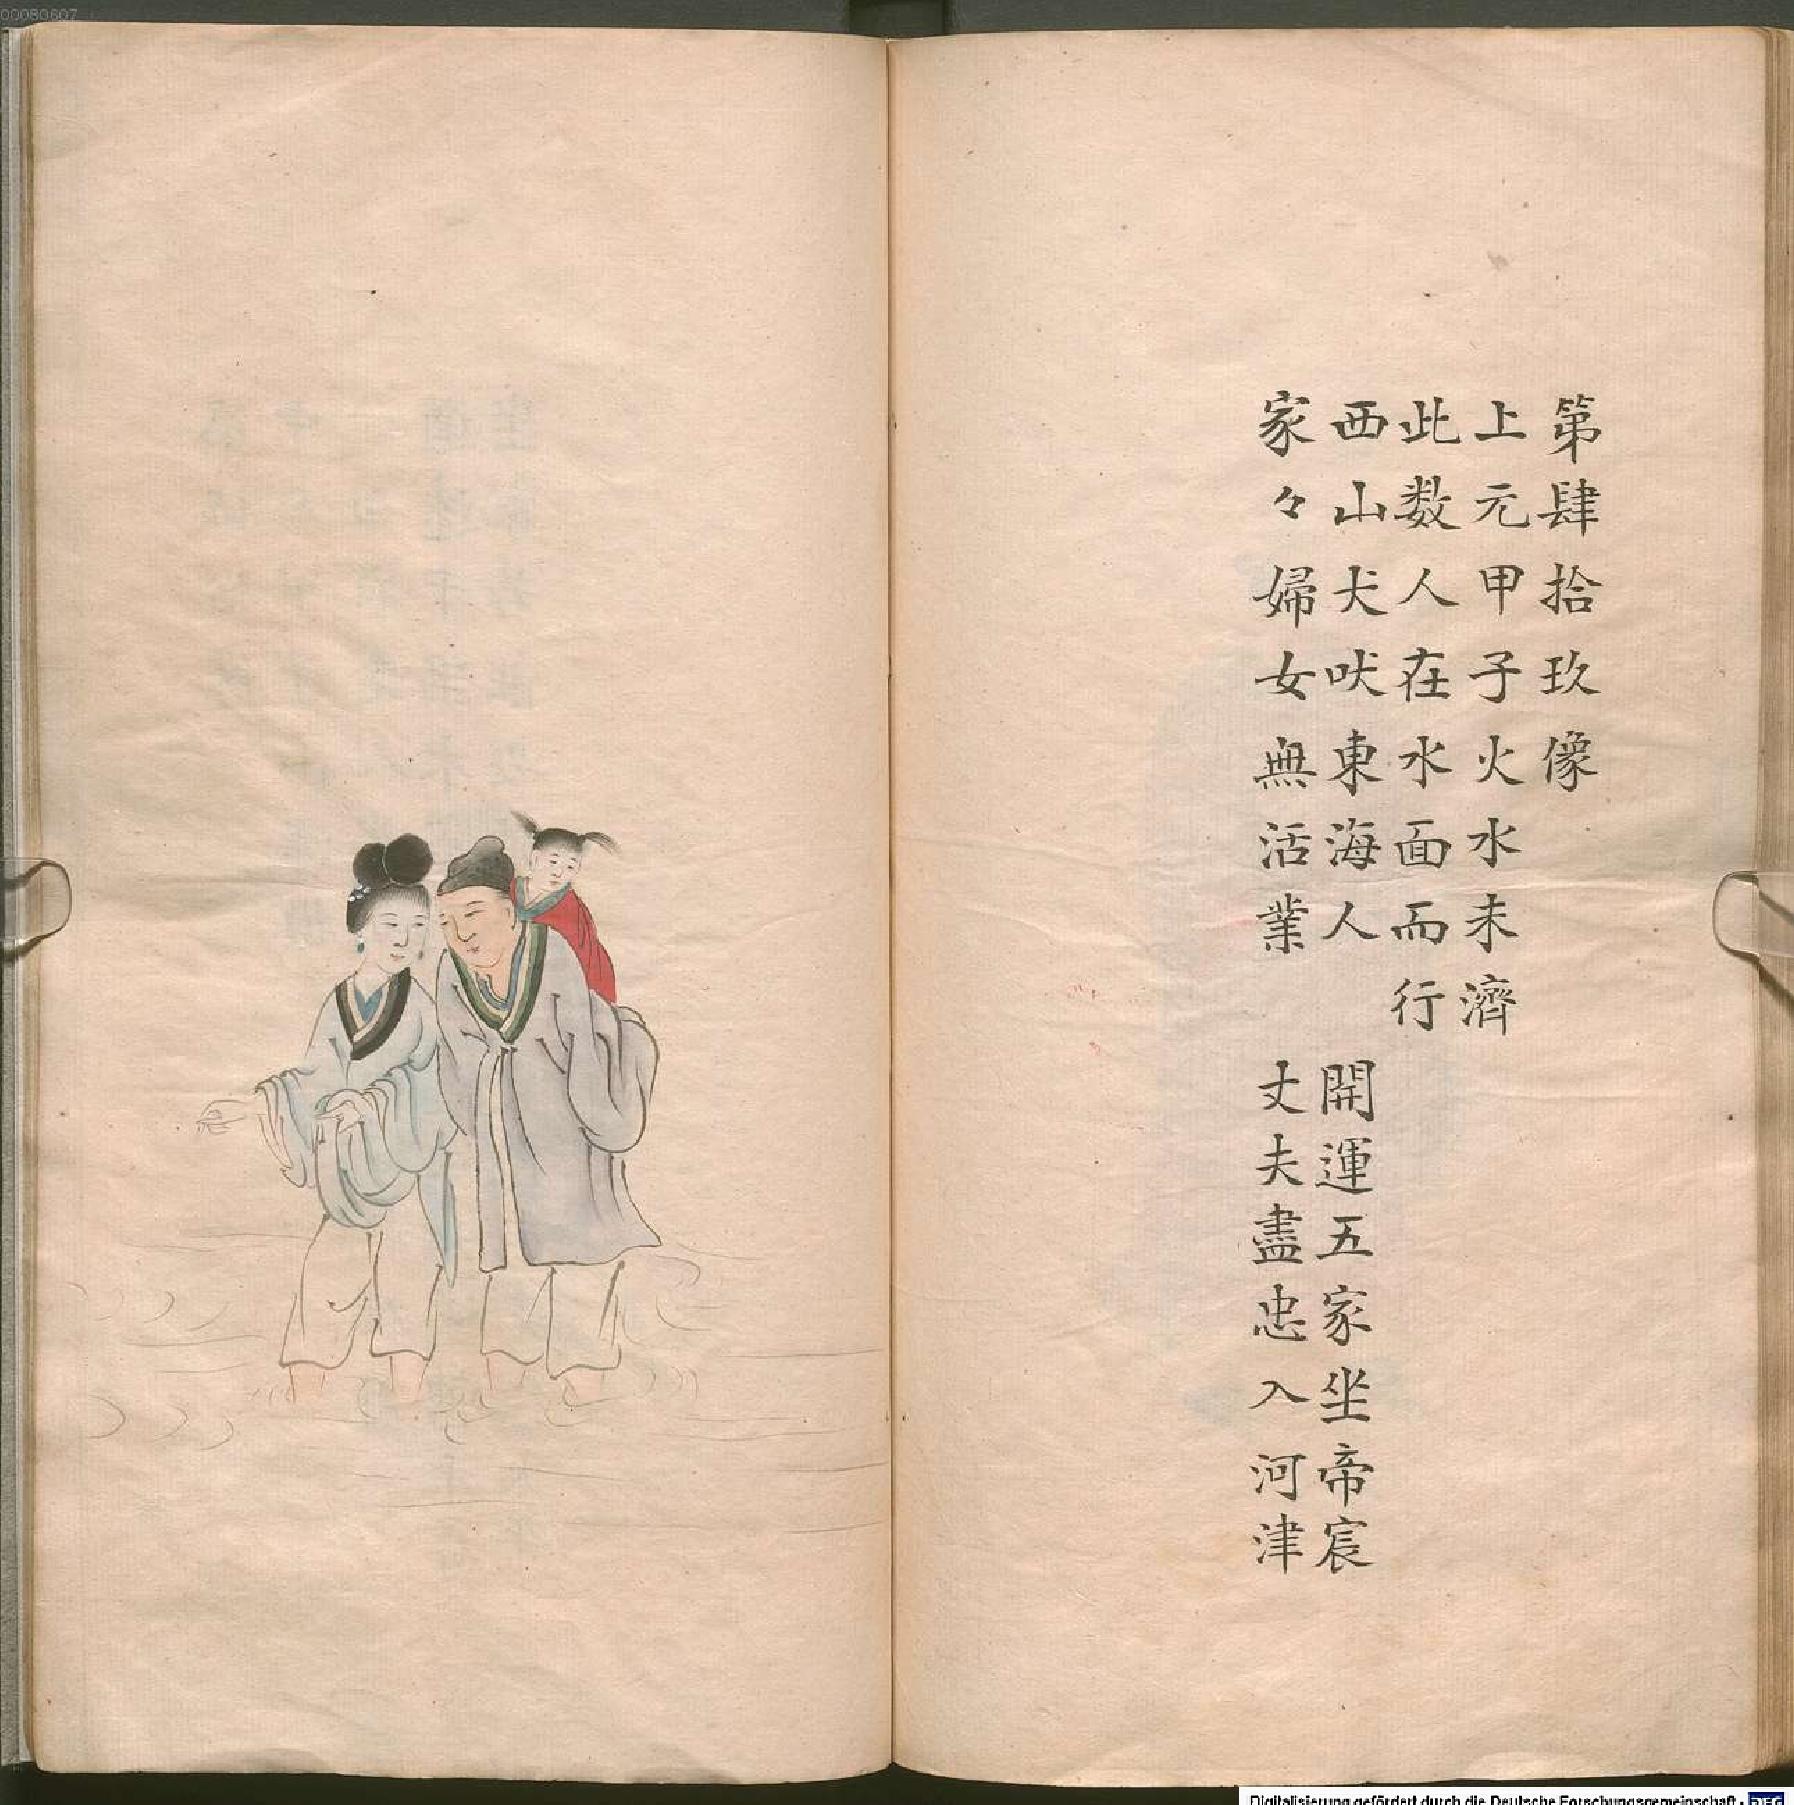 00080607
第肆拾玖像
上元甲子火水未濟
此数人在水面而行
西山犬吠東海人　開運五家坐帝宸
家々婦女無活業　丈夫盡忠入河津
Digitalisierung gefördert durch die Deutsche Forschungsgemeinschaft - DFG